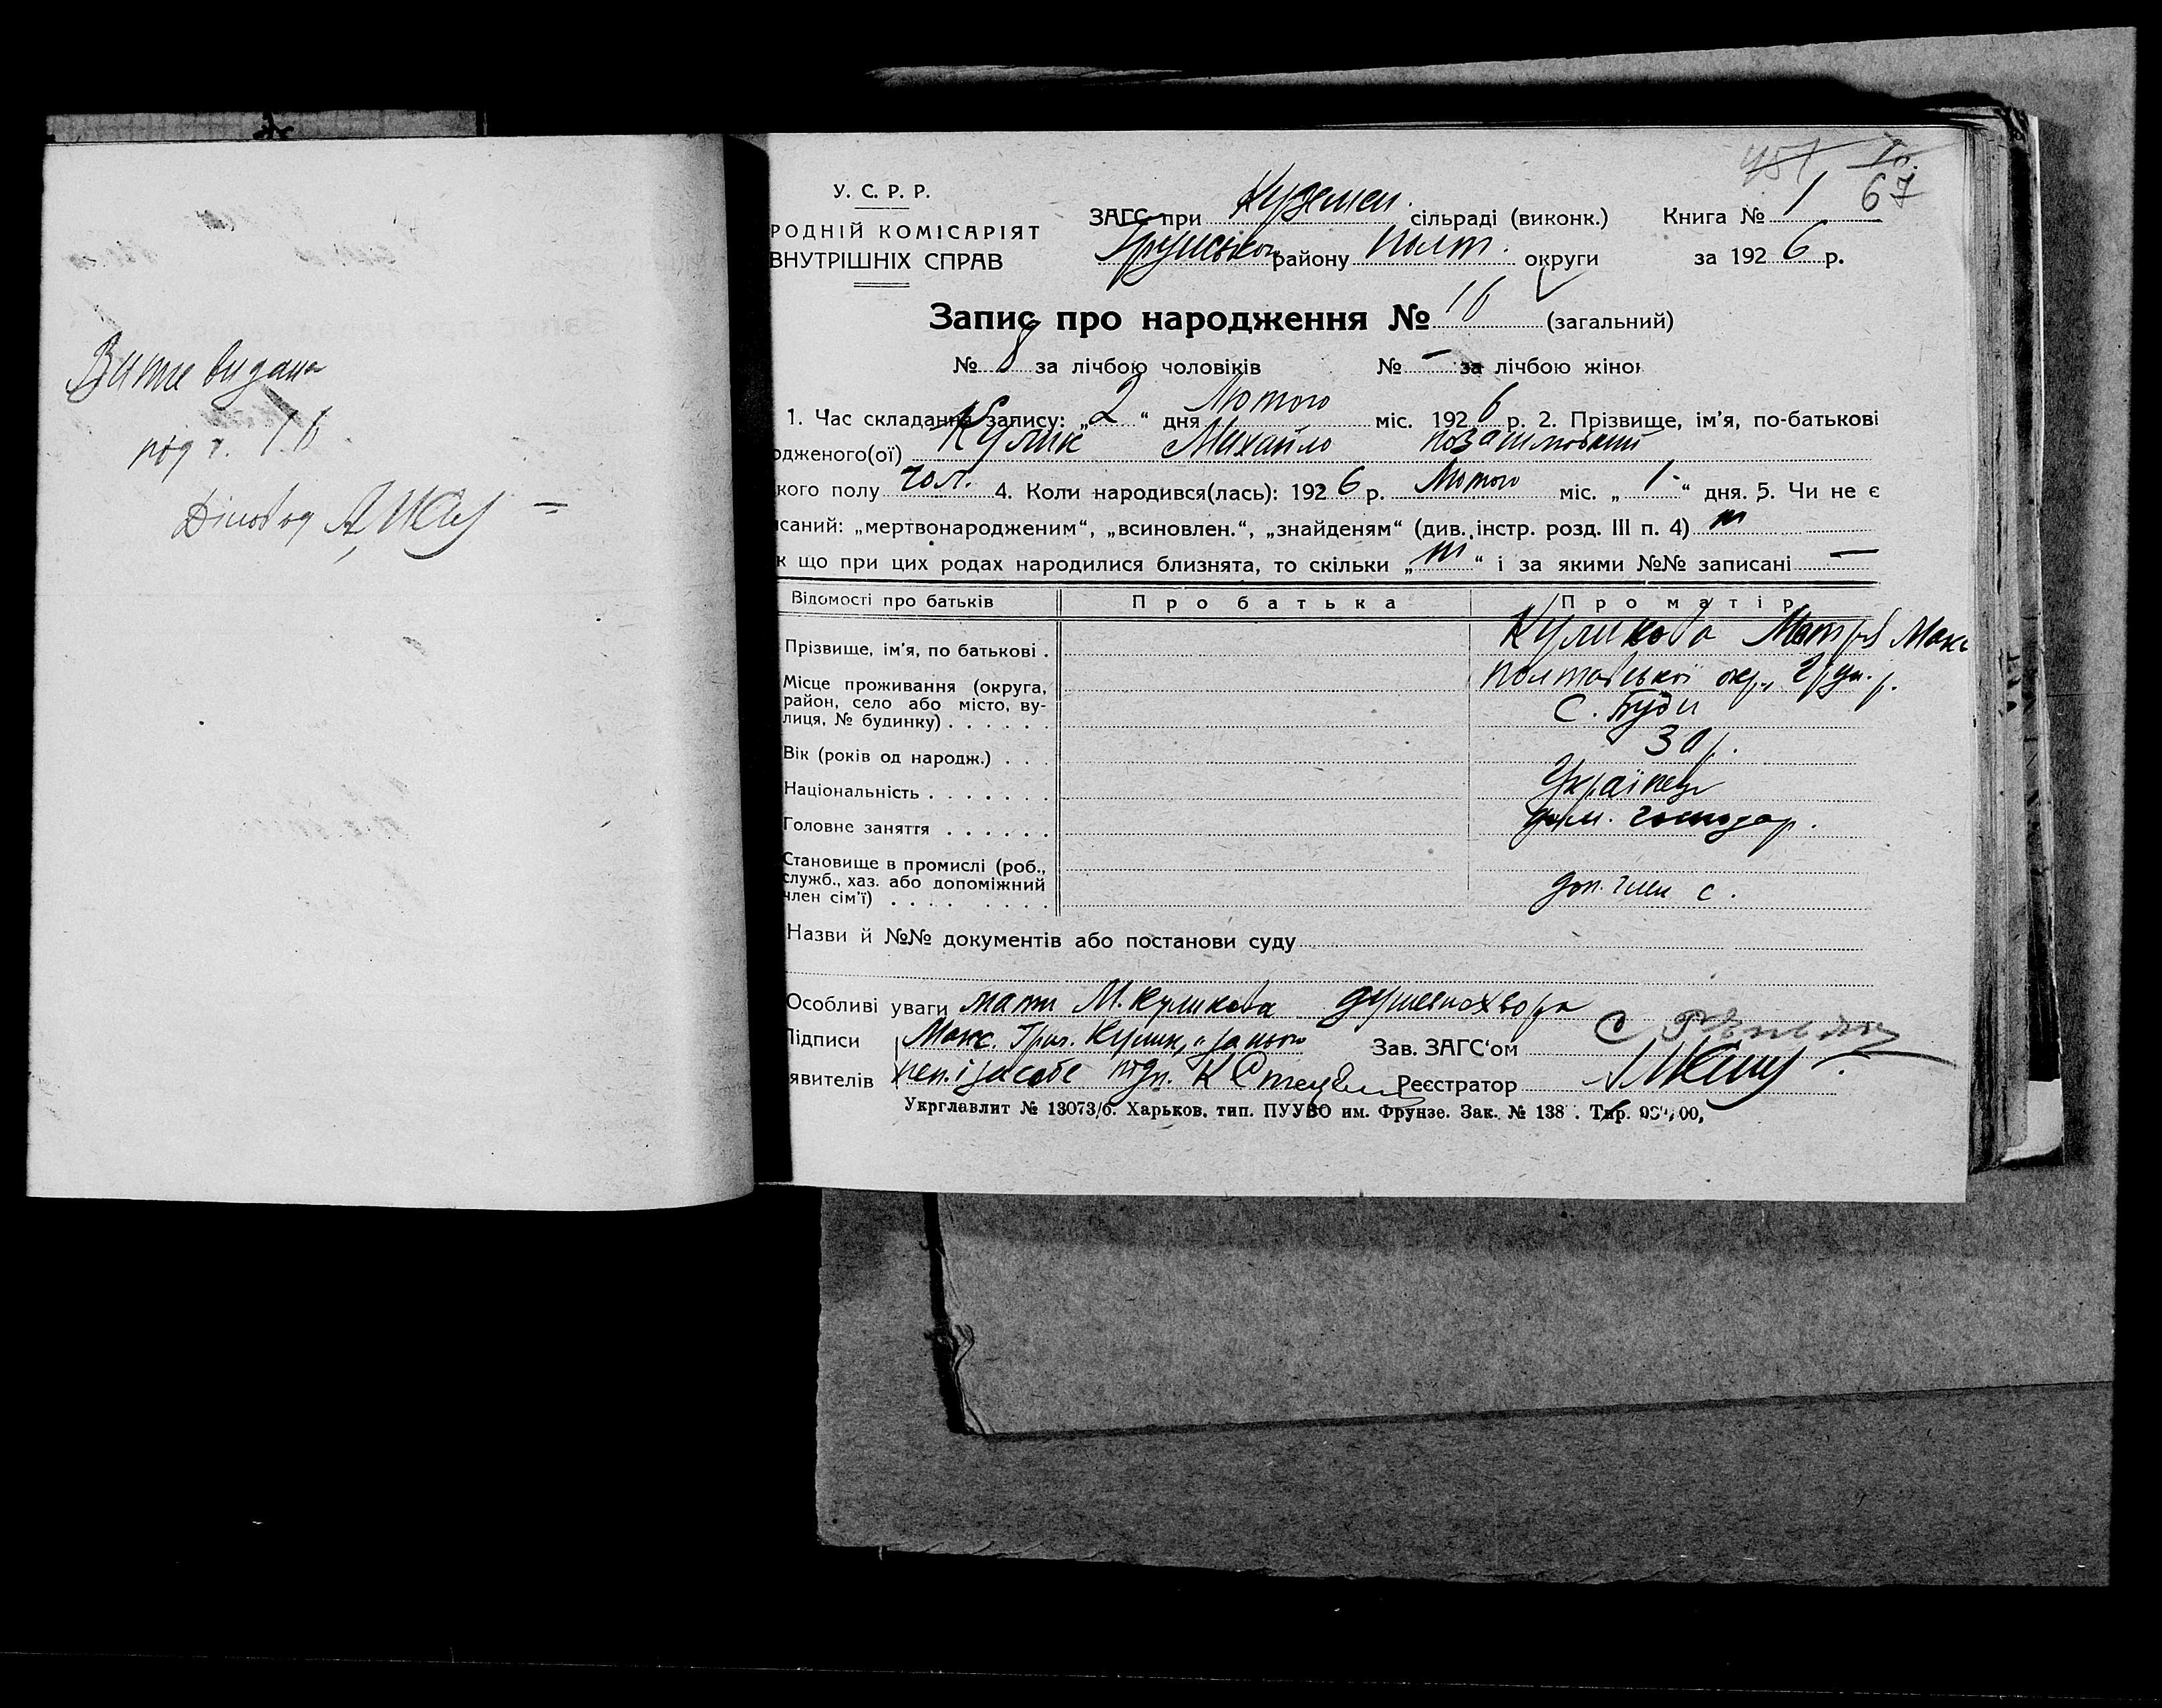 Витяг видана
під ч. 16
Діловод
451
67
У. С. Р. Р.
РОДНІЙ КОМІСАРІЯТ
ВНУТРІШНІХ СПРАВ
ЗАГС при Куземен. сільраді (виконк.) Книга № 1
Грунськ району Полт. округи за 1926 р.
Запис про народження № 16 (загальний)
№ 8 за лічбою чоловіків № — за лічбою жінок
1. Час складання запису: „2“ дня Лютого міс. 1926 р. 2. Прізвище, ім’я, по-батькові
одженого(ої) Кулик Михайло позашлюбний
кого полу чол. 4. Коли народився(лась): 1926 р. Лютого міс. „1“ дня. 5. Чи не є
исаний: „мертвонародженим“, „всиновлен.“, „знайденям“ (див. інстр. розд. III п. 4) ні
к що при цих родах народилися близнята, то скільки „ні“ і за якими №№ записані —
Відомості про батьків Про батька Про матір
Прізвище, ім’я, по батькові . Куликова Мотря Макс
Місце проживання (округа, район, село або місто, вулиця, № будинку) . . . . . Полтавської окр., Грун. р.
С. Буди
Вік (років од народж.) . . . 30 р.
Національність . . . . . . . Українець
Головне заняття . . . . . . дом. господар.
Становище в промислі (роб.,
служб., хаз. або допоміжний
член сім’ї) . . . . . . . . доп. член с.
Назви й №№ документів або постанови суду
Особливі уваги мати М. Куликова душевнохвора
Підписи Макс. Григ. Кулик, а за нього Зав. ЗАГС‘ом
явителів неп. і за себе підп. К Реєстратор
Укрглавлит № 13073/б. Харьков, тип. ПУУВО им. Фрунзе. Зак. № 138 . Тир.